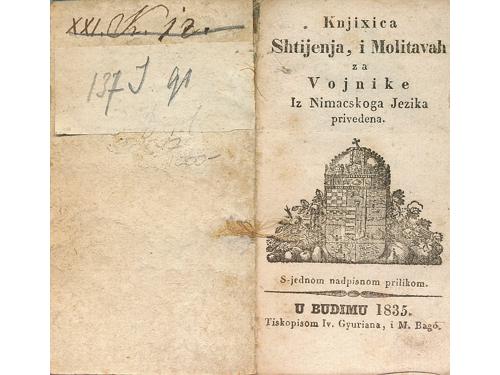 XXI. K. j2.
137 J 91
Knjixica
Shtijenja, i Molitavah
za
Vojnike
Iz Nimacskoga Jezika
privedena.
S-jednom nadpisnom prilikom.
U BUDIMU 1835.
Tiskopisom Iv. Gyuriana, i M. Bagó.